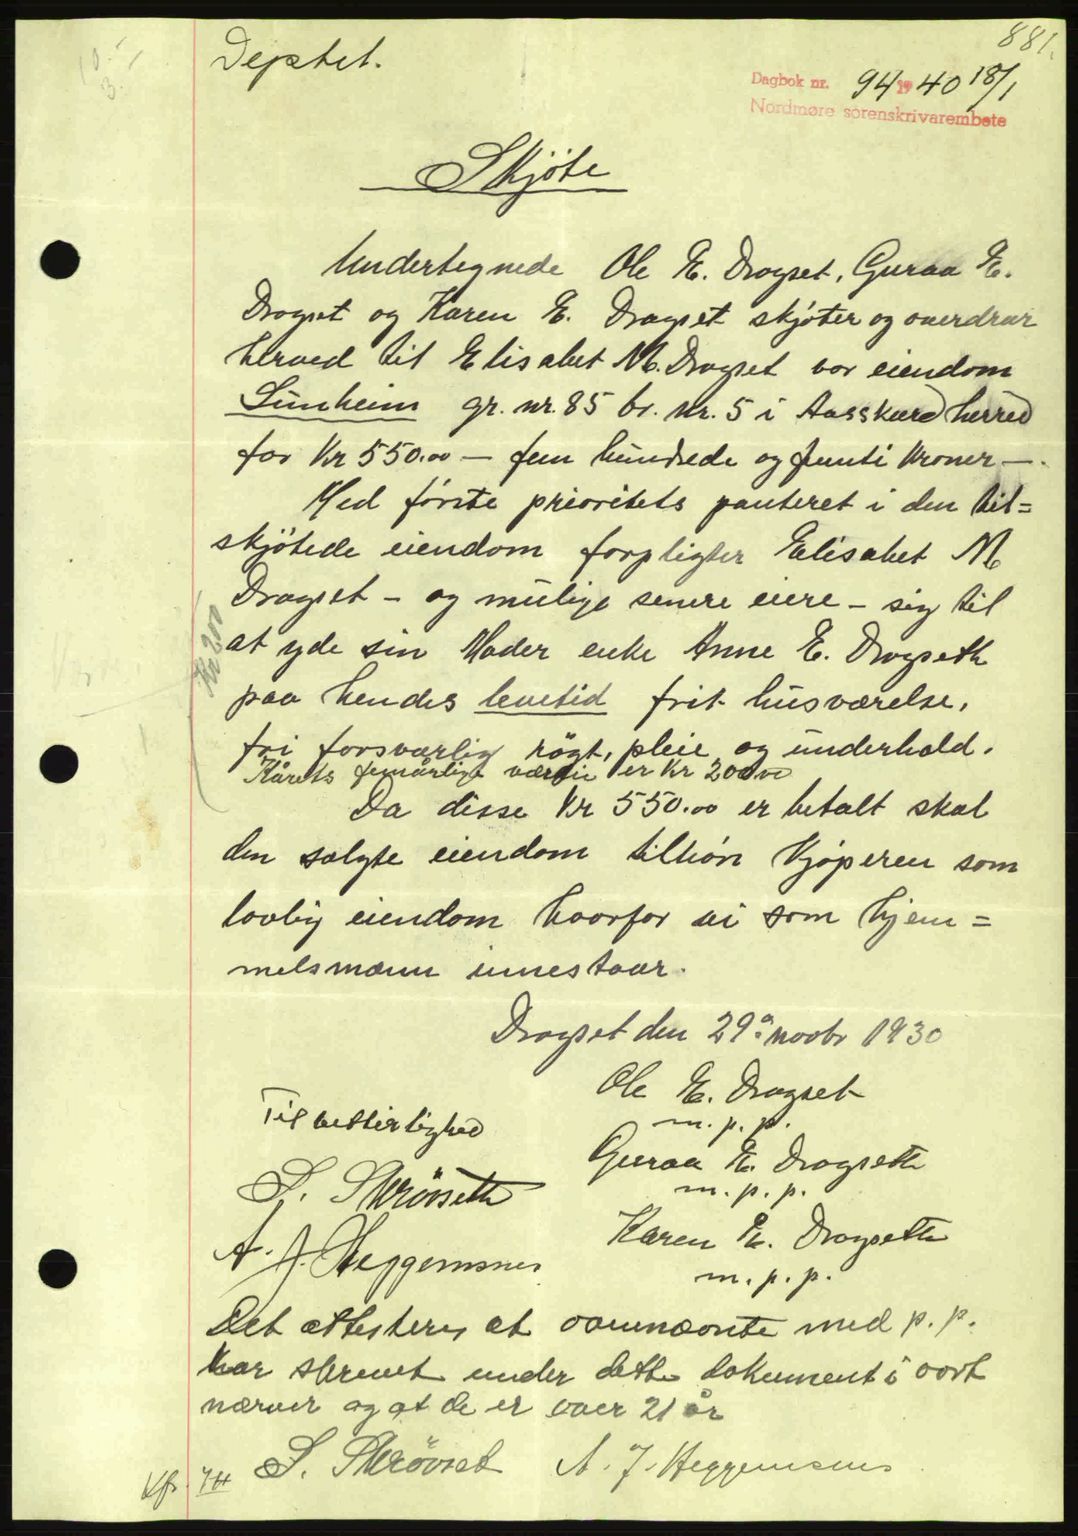 881.
Dagbok nr. 94 1940 18/1
Nordmøre sorenskrivarembete
Skjöte
Undertegnede Ole E. Dragset, Guraa E.
Dragset og Karen E. Dragset skjöter og overdrar
herved til Elisabet M. Dragset vor eiendom
Sunheim gr. nr. 85 br. nr. 5 i Aasskard herred
for Kr 550.00 — fem hundrede og femti kroner —.
Med förste prioritets panteret i den til=
skjötede eiendom forpligter Elisabet M
Dragset – og mulige senere eiere – sig til
at yde sin Moder enke Anne E. Dragseth
paa hendes levetid frit husværelse,
fri forsvarlig rögt, pleie og underhold.
Kårets femårlige værdie er Kr 200.00
Kr 200
Da disse Kr 550.00 er betalt skal
den solgte eiendom tilhör Kjöperen som
lovlig eiendom hvorfor vi som hjem=
melsmænn innestaar.
Dragset den 29de novbr 1930
Ole E. Dragset
m. p. p.
Til vitterlighed
Guraa E. Dragseth
m. p. p.
S. Skrövseth
Karen E. Dragseth
m. p. p.
A. J. Heggemsnes
Det attesteres at ovennævnte med p. p.
har skrevet under dette dokument i vort
nærver og at de er over 21 år
S. Skrövset A. J. Heggemsnes